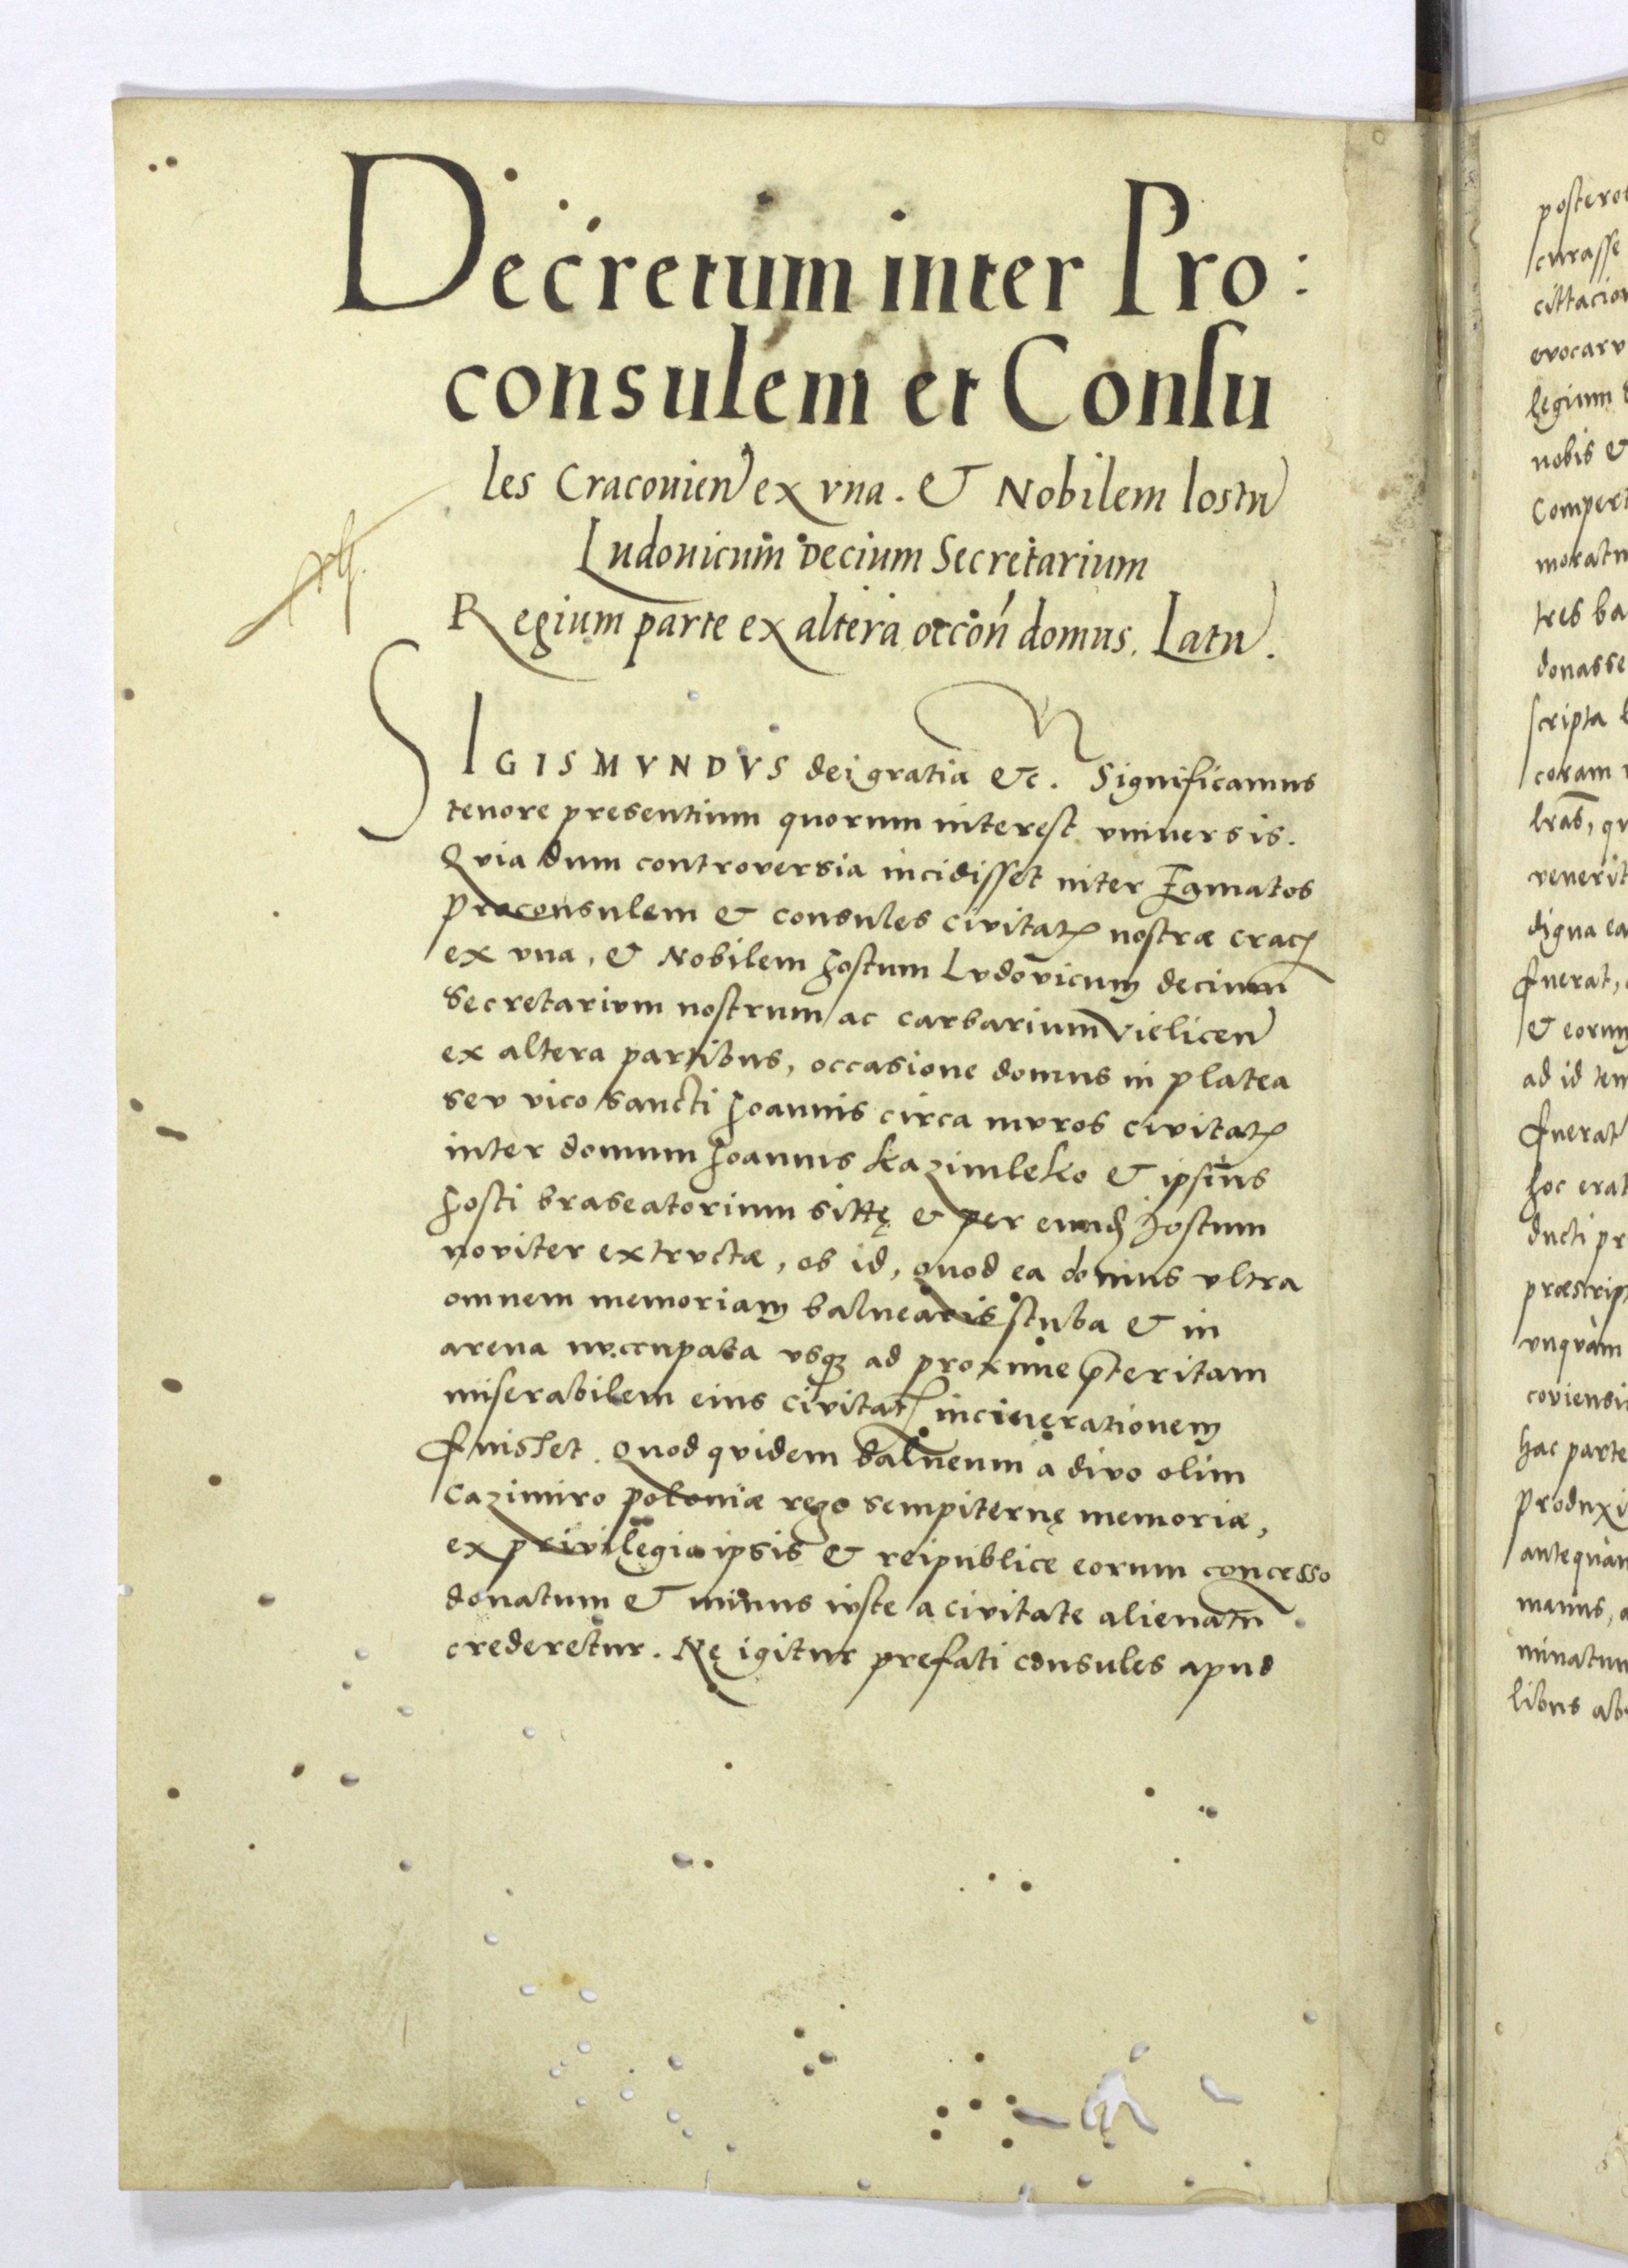 Decretum inter Pro:
consulem et Consu
les Cracouien ex vna. & Nobilem Iostu
Ludouicum Decium Secretarium
Regium parte ex altera occōn domus. Latu.
SIGISMVNDVS dei gratia &c. Significamus
tenore presentium quorum interest vniuersis.
Qvia dum controversia incidisset inter Famatos
Proconsulem & consules civitatꝭ nostræ Cracꝭ
ex vna, & Nobilem Jostum Lvdovicum decium
Secretarivm nostrum ac carbarium vielicen
ex altera partibus, occasione domus in platea
sev vico sancti Joannis circa mvros civitatꝭ
inter domum Joannis kazimleko & ipsius
Josti braseatorium sittę & per eundꝭ Jostum
noviter extrvctæ, ob id, quod ea domus vltra
omnem memoriam balnearis stuba & in
arena nvccupata vsqꝫ ad proxime p̄teritam
miserabilem eius civitatꝭ incinerationem
fuisset. quod qvidem balneum a divo olim
Cazimiro poloniæ rege sempiternę memoriæ,
ex privilegio ipsis & reipublice eorum concesso
donatum & minus ivste a civitate alienatū
crederetur. Nę igitur prefati consules apud
postero
curasse
cittacion
evocarv
legium
nobis &
Compert
moratu
tres ba
donasse
scripta
coram
lrās, qu
venerit
digna ea
fuerat,
& eorum
ad id tem
fuerat
hoc erat
ducti pr
præscript
vnqvàm
coviensi
hac parte
produxi
antequàm
manus, a
minatum
libus ab